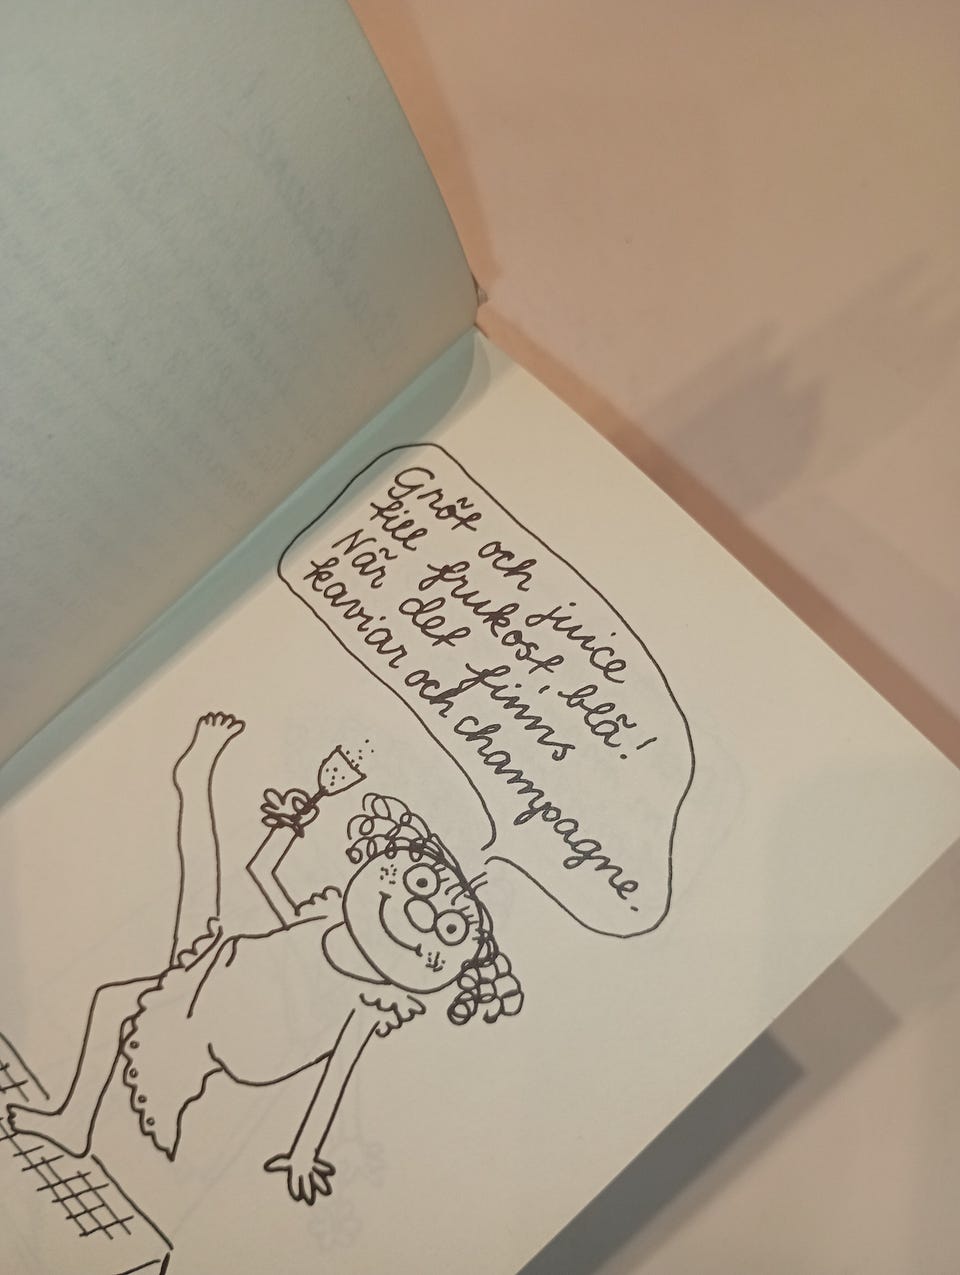 Gröt och juice
till frukost, blä!
När det finns
kaviar och champagne.